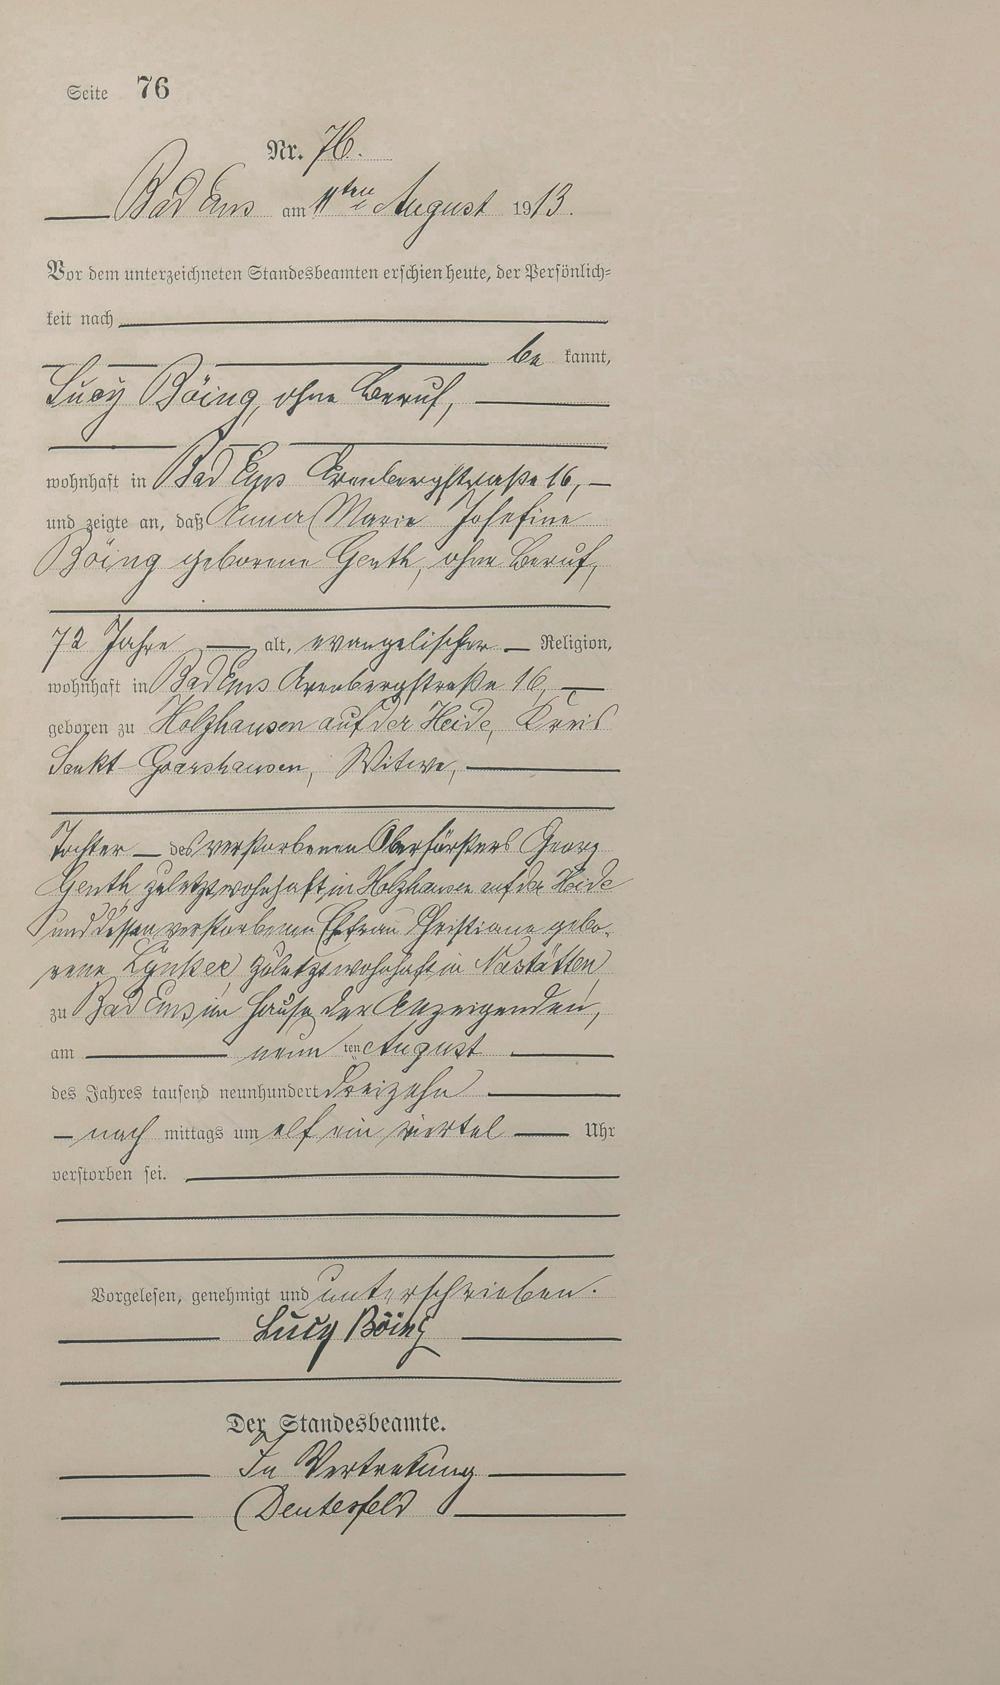 Seite 76
Nr. 76.
Bad Ems am 11ten August 1913.
Vor dem unterzeichneten Standesbeamten erschien heute, der Persönlich-
keit nach
be kannt,
Lucy Böing, ohne Beruf,
wohnhaft in Bad Ems Arenbergstraße 16,
und zeigte an, daß Anna Marie Josefine
Böing geborene Genth, ohne Beruf,
72 Jahre alt, evangelischer Religion,
wohnhaft in Bad Ems Arenbergstraße 16,
geboren zu Holzhausen auf der Heide, Kreis
Sankt Goarshausen, Witwe,
Tochter des verstorbenen Oberförsters Georg
Genth zuletzt wohnhaft in Holzhausen auf der Heide
und dessen verstorbenen Ehefrau Christiane gebo-
rene zuletzt wohnhaft in Nastätten
zu Bad Ems im Hause der Anzeigenden,
am neun ten August
des Jahres tausend neunhundert dreizehn
nach mittags um elf ein viertel Uhr
verstorben sei.
Vorgelesen, genehmigt und unterschrieben.
Lucy Böing
Der Standesbeamte.
In Vertretung